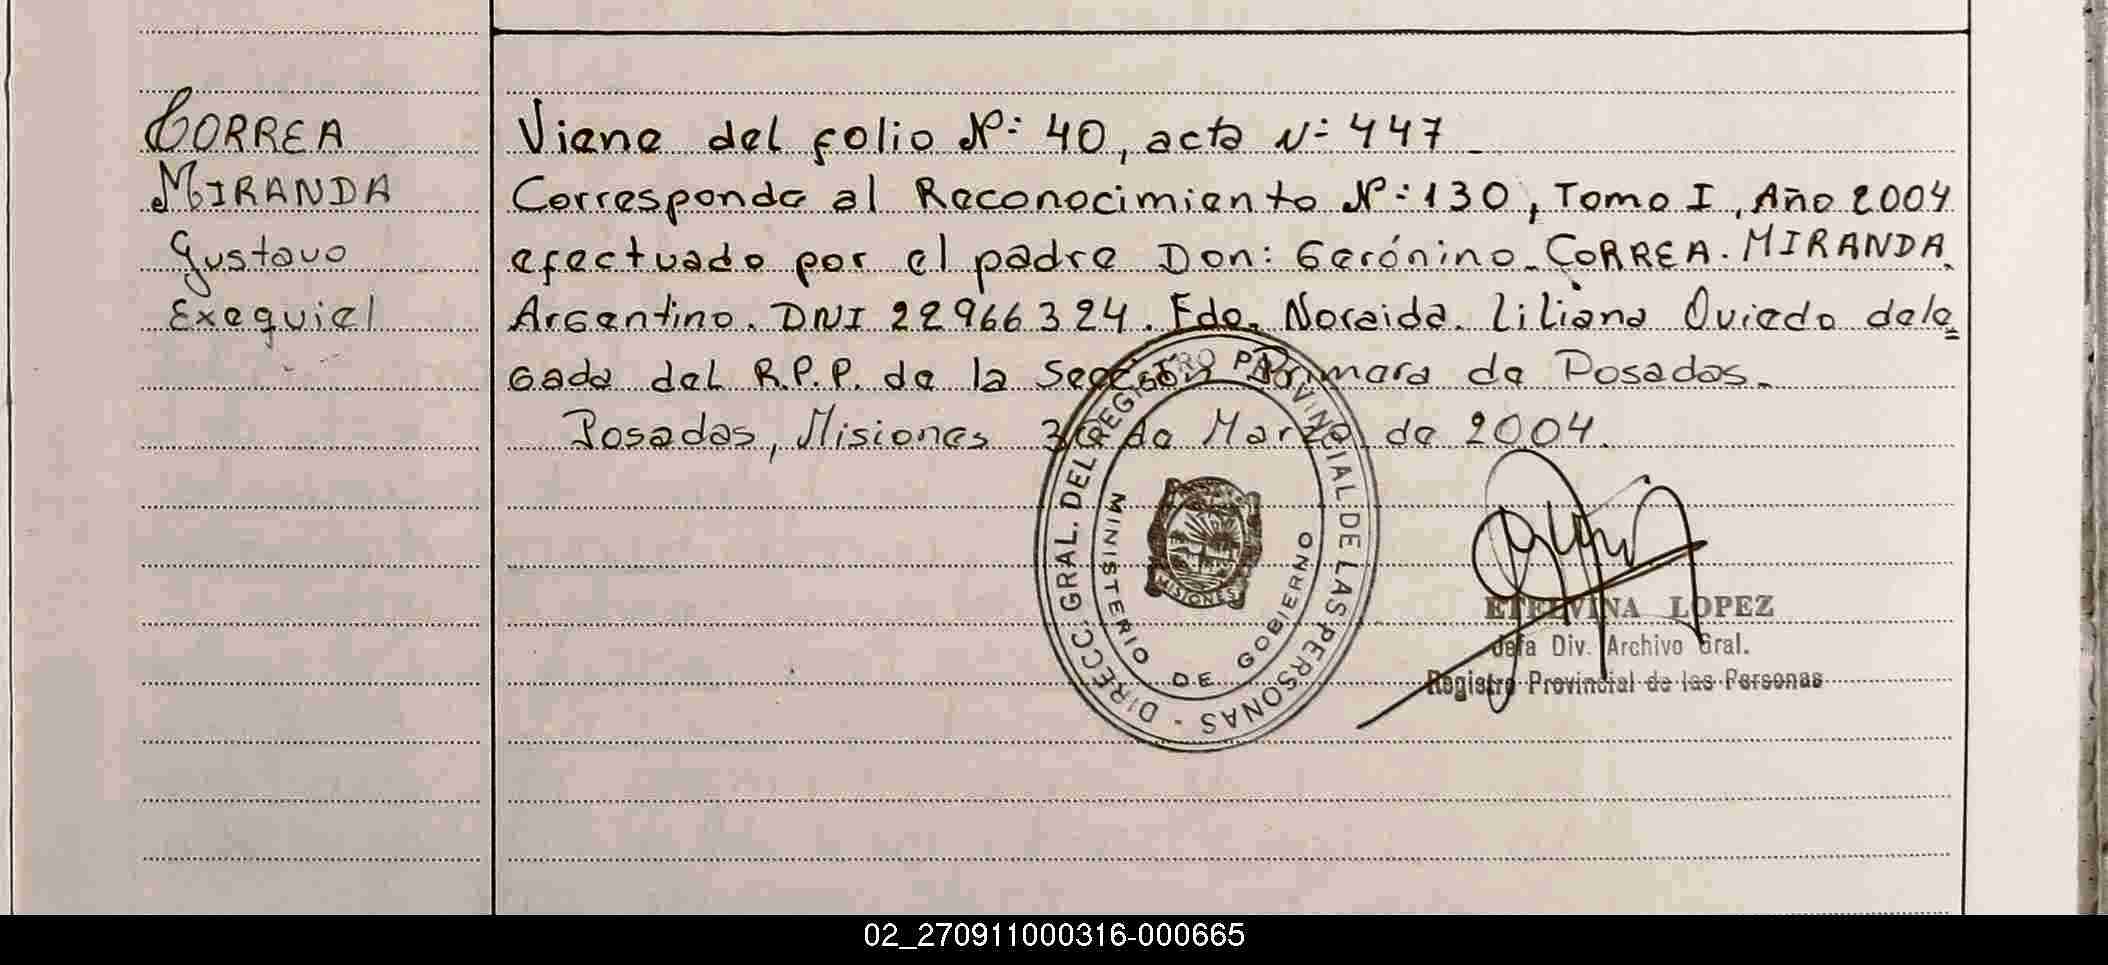 CORREA
MIRANDA
Gustavo
Exequiel
Viene del folio Nº: 40, acta Nº: 447
Corresponde al Reconocimiento Nº: 130, Tomo I, Año 2004
efectuado por el padre Don: Gerónino. CORREA. MIRANDA.
Argentino. DNI 22966324. Fdo. Noraida. Liliana Oviedo dele=
gada del R.P.P. de la Sección Primera de Posadas.
Posadas, Misiones 30 de Marzo de 2004.
DIRECC. GRAL. DEL REGISTRO PROVINCIAL DE LAS PERSONAS -
MINISTERIO DE GOBIERNO
MISIONES
ETELVINA LOPEZ
Jefa Div. Archivo Gral.
Registro Provincial de las Personas
02_270911000316-000665